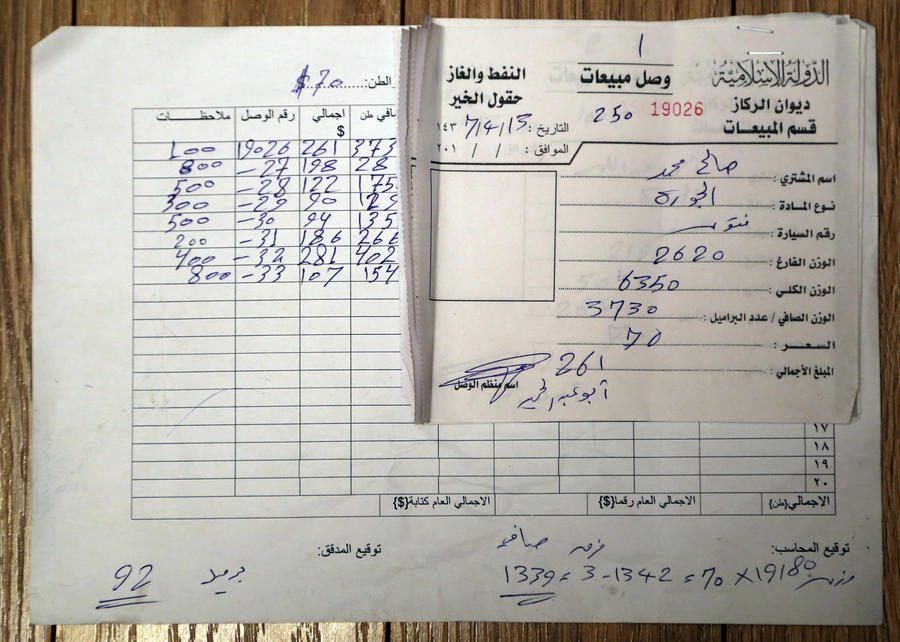 ١
الدولة الإسلامية
ديوان الركاز
قسم المبيعات
وصل مبيعات
250 19026
النفط والغاز
حقول الخير
التاريخ : 7/4/13 ١٤٣
الموافق : / / ٢٠١
اسم المشتري : صالح محمد
نوع المادة : الجورة
رقم السيارة :
الوزن الفارغ : 2620
الوزن الكلي : 6350
الوزن الصافي / عدد البراميل : 3730
السعر : 70
المبلغ الأجمالي : 261
اسم منظم الوصل
الطن: $70
افي طن اجمالي $ رقم الوصل ملاحظات
373 261 19026 100
28 198 27– 800
175 122 28– 500
129 90 29– 300
135 94 30– 500
266 186 31– 200
402 281 32– 400
154 107 33– 800
١٧
١٨
١٩
٢٠
الاجمالي{طن} الاجمالي العام رقما{$} الاجمالي العام كتابة{$}
توقيع المحاسب: توقيع المدقق:
1339 = 3 - 1342 = 70 × 19180
92